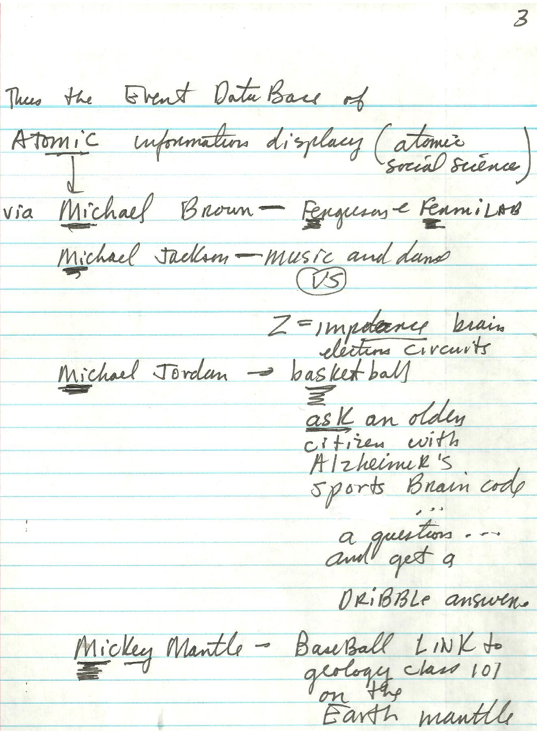 3
Thus the Event DataBase of
Atomic information display (atomic
social science)
via Michael Brown - Ferguson - e FermiLAB
Michael Jackson - music and dance
VS
Z = impedence brain
electrons circuits
Michael Jordan - basketball
ask an older
citizen with
Alzheimer's
sports Brain code
...
a question ...
and get a
DRiBBLe answer.
Mickey Mantle - BaseBall LINK to
geology class 101
on the
Earth mantle